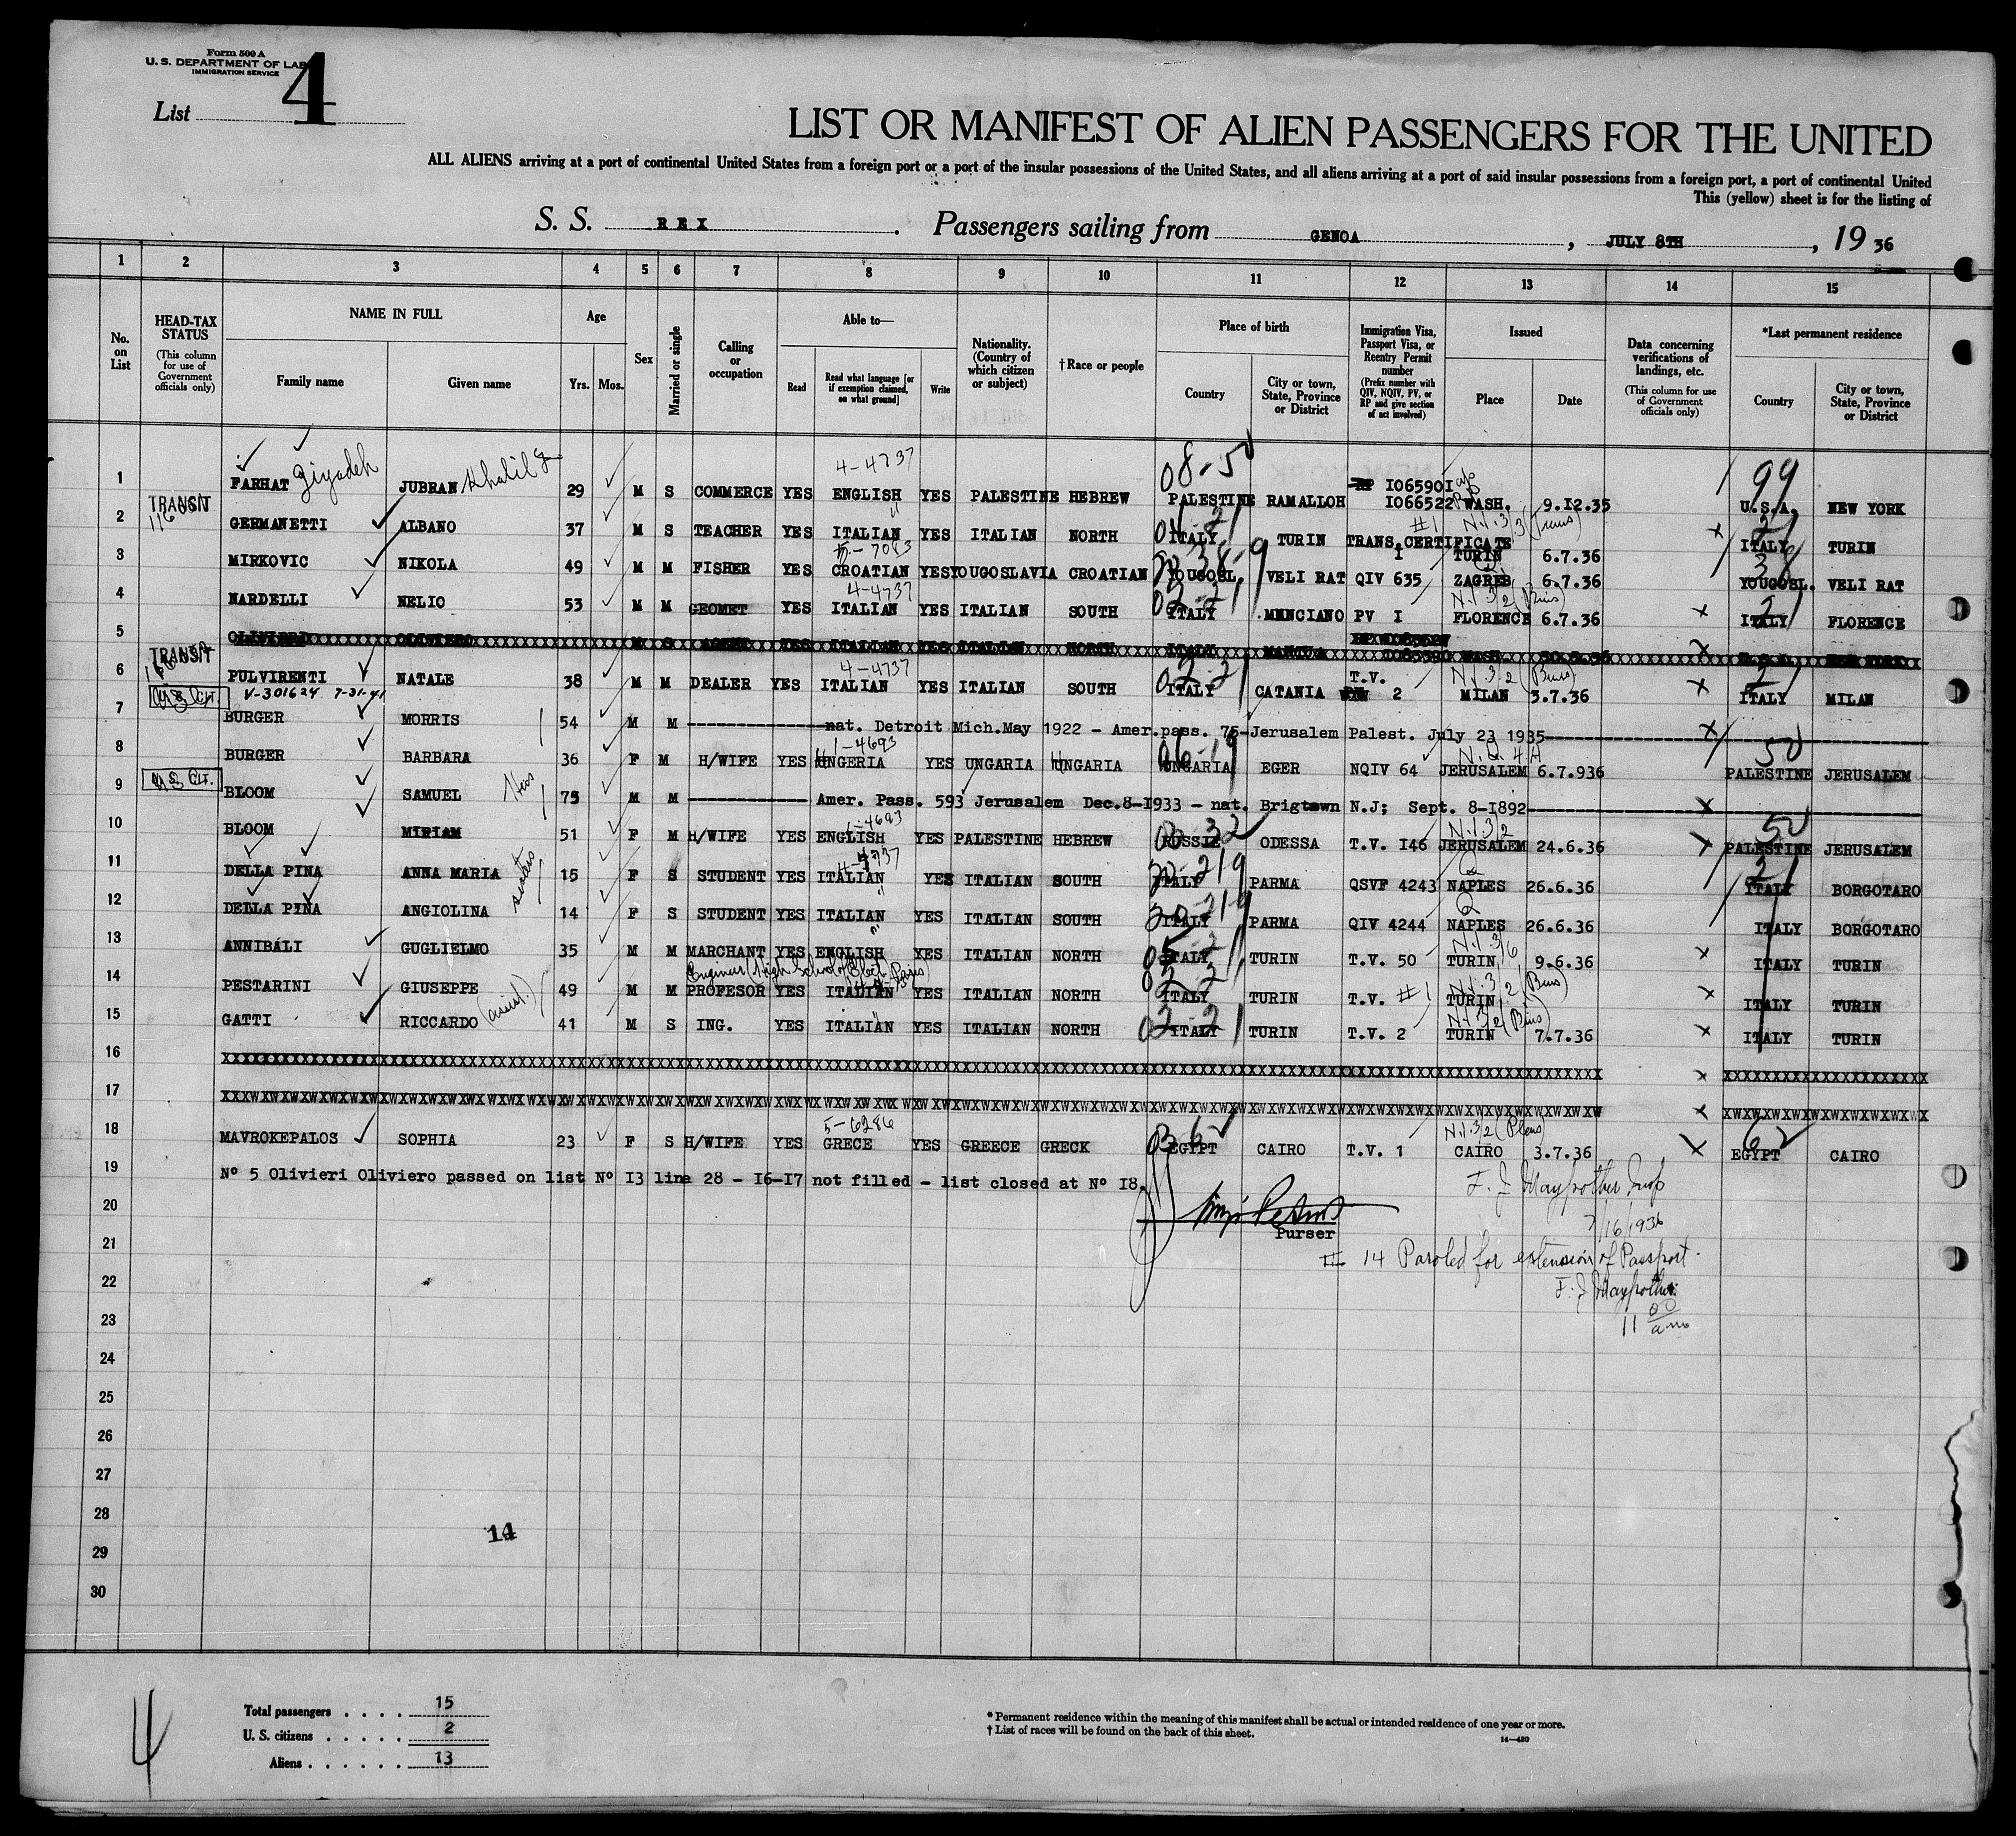 Form 500 A
U. S. DEPARTMENT OF LAB
IMMIGRATION SERVICE
List 4
LIST OR MANIFEST OF ALIEN PASSENGERS FOR THE UNITED
ALL ALIENS arriving at a port of continental United States from a foreign port or a port of the insular possessions of the United States, and all aliens arriving at a port of said insular possessions from a foreign port, a port of continental United
This (yellow) sheet is for the listing of
S. S. REX . Passengers sailing from GENOA , JULY 8TH , 19 36
1 2 3 4 5 6 7 8 9 10 11 12 13 14 15
No. on List
HEAD-TAX STATUS (This column for use of Government officials only)
NAME IN FULL Family name Given name
Age Yrs. Mos.
Sex
Married or single
Calling or occupation
Able to— Read Read what language [or if exemption claimed, on what ground] Write
Nationality. (Country of which citizen or subject)
†Race or people
Place of birth Country City or town, State, Province or District
Immigration Visa, Passport Visa, or Reentry Permit number (Prefix number with QIV, NQIV, PV, or RP and give section of act involved)
Issued Place Date
Data concerning verifications of landings, etc. (This column for use of Government officials only)
*Last permanent residence Country City or town, State, Province or District
4-4737 08-50 99
1 FARHAT Ziyadeh JUBRAN Khalil 29 M S COMMERCE YES ENGLISH YES PALESTINE HEBREW PALESTINE RAMALLOH RP I065901 I066522 WASH. 9.I2.35 U.S.A. NEW YORK
2 TRANSIT GERMANETTI ALBANO 37 M S TEACHER YES ITALIAN YES ITALIAN NORTH ITALY TURIN TRANS.CERTIFICATE I TURIN 6.7.36 ITALY TURIN
3 MIRKOVIC NIKOLA 49 M M FISHER YES CROATIAN YES YOUGOSLAVIA CROATIAN YOUGOSL. VELI RAT QIV 635 ZAGREB 6.7.36 YOUGOSL. VELI RAT
4-4737
4 NARDELLI NELIO 53 M M GEOMET YES ITALIAN YES ITALIAN SOUTH ITALY MANCIANO PV I FLORENCE 6.7.36 ITALY FLORENCE
5 OLIVIERO M S AGENT YES ITALIAN YES ITALIAN NORTH ITALY MANTUA WASH. U.S.A. NEW YORK
4-4737
6 TRANSIT PULVIRENTI NATALE 38 M M DEALER YES ITALIAN YES ITALIAN SOUTH ITALY CATANIA T.V. 2 MILAN 3.7.36 ITALY MILAN
V-301624 7-31-41
7 U.S. CIT. BURGER MORRIS 54 M M nat. Detroit Mich.May 1922 - Amer.pass. 75-Jerusalem Palest. July 23 1935
1-4693
8 BURGER BARBARA 36 F M H/WIFE YES UNGERIA YES UNGARIA UNGARIA UNGARIA EGER NQIV 64 JERUSALEM 6.7.936 PALESTINE JERUSALEM
9 U.S. CIT. BLOOM SAMUEL 75 M M Amer. Pass. 593 Jerusalem Dec.8-I933 - nat. Brigtown N.J; Sept. 8-I892
1-4693
10 BLOOM MIRIAM 51 F M H/WIFE YES ENGLISH YES PALESTINE HEBREW RUSSIE ODESSA T.V. I46 JERUSALEM 24.6.36 PALESTINE JERUSALEM
4-4737
11 DELLA PINA ANNA MARIA sisters 15 F S STUDENT YES ITALIAN YES ITALIAN SOUTH ITALY PARMA QSVF 4243 NAPLES 26.6.36 ITALY BORGOTARO
12 DELLA PINA ANGIOLINA 14 F S STUDENT YES ITALIAN YES ITALIAN SOUTH ITALY PARMA QIV 4244 NAPLES 26.6.36 ITALY BORGOTARO
13 ANNIBALI GUGLIELMO 35 M M MARCHANT YES ENGLISH YES ITALIAN NORTH ITALY TURIN T.V. 50 TURIN 9.6.36 ITALY TURIN
14 PESTARINI GIUSEPPE 49 M M PROFESOR YES ITALIAN YES ITALIAN NORTH ITALY TURIN T.V. #1 TURIN ITALY TURIN
15 GATTI RICCARDO 41 M S ING. YES ITALIAN YES ITALIAN NORTH ITALY TURIN T.V. 2 TURIN 7.7.36 ITALY TURIN
16
17
5-6286
18 MAVROKEPALOS SOPHIA 23 F S H/WIFE YES GRECE YES GREECE GRECK EGYPT CAIRO T.V. 1 CAIRO 3.7.36 EGYPT CAIRO
19 Nº 5 Olivieri Oliviero passed on list Nº I3 line 28 - I6-I7 not filled - list closed at Nº I8.
F. J Maypother Insp
20 7/16/1936
Purser
21 # 14 Paroled for extension of Passport.
22 F. J Maypother
23 11 00 am
24
25
26
27
28
14
29
30
4
Total passengers . . . . 15
U. S. citizens . . . . . 2
Aliens . . . . . . 13
* Permanent residence within the meaning of this manifest shall be actual or intended residence of one year or more.
† List of races will be found on the back of this sheet.
14—430